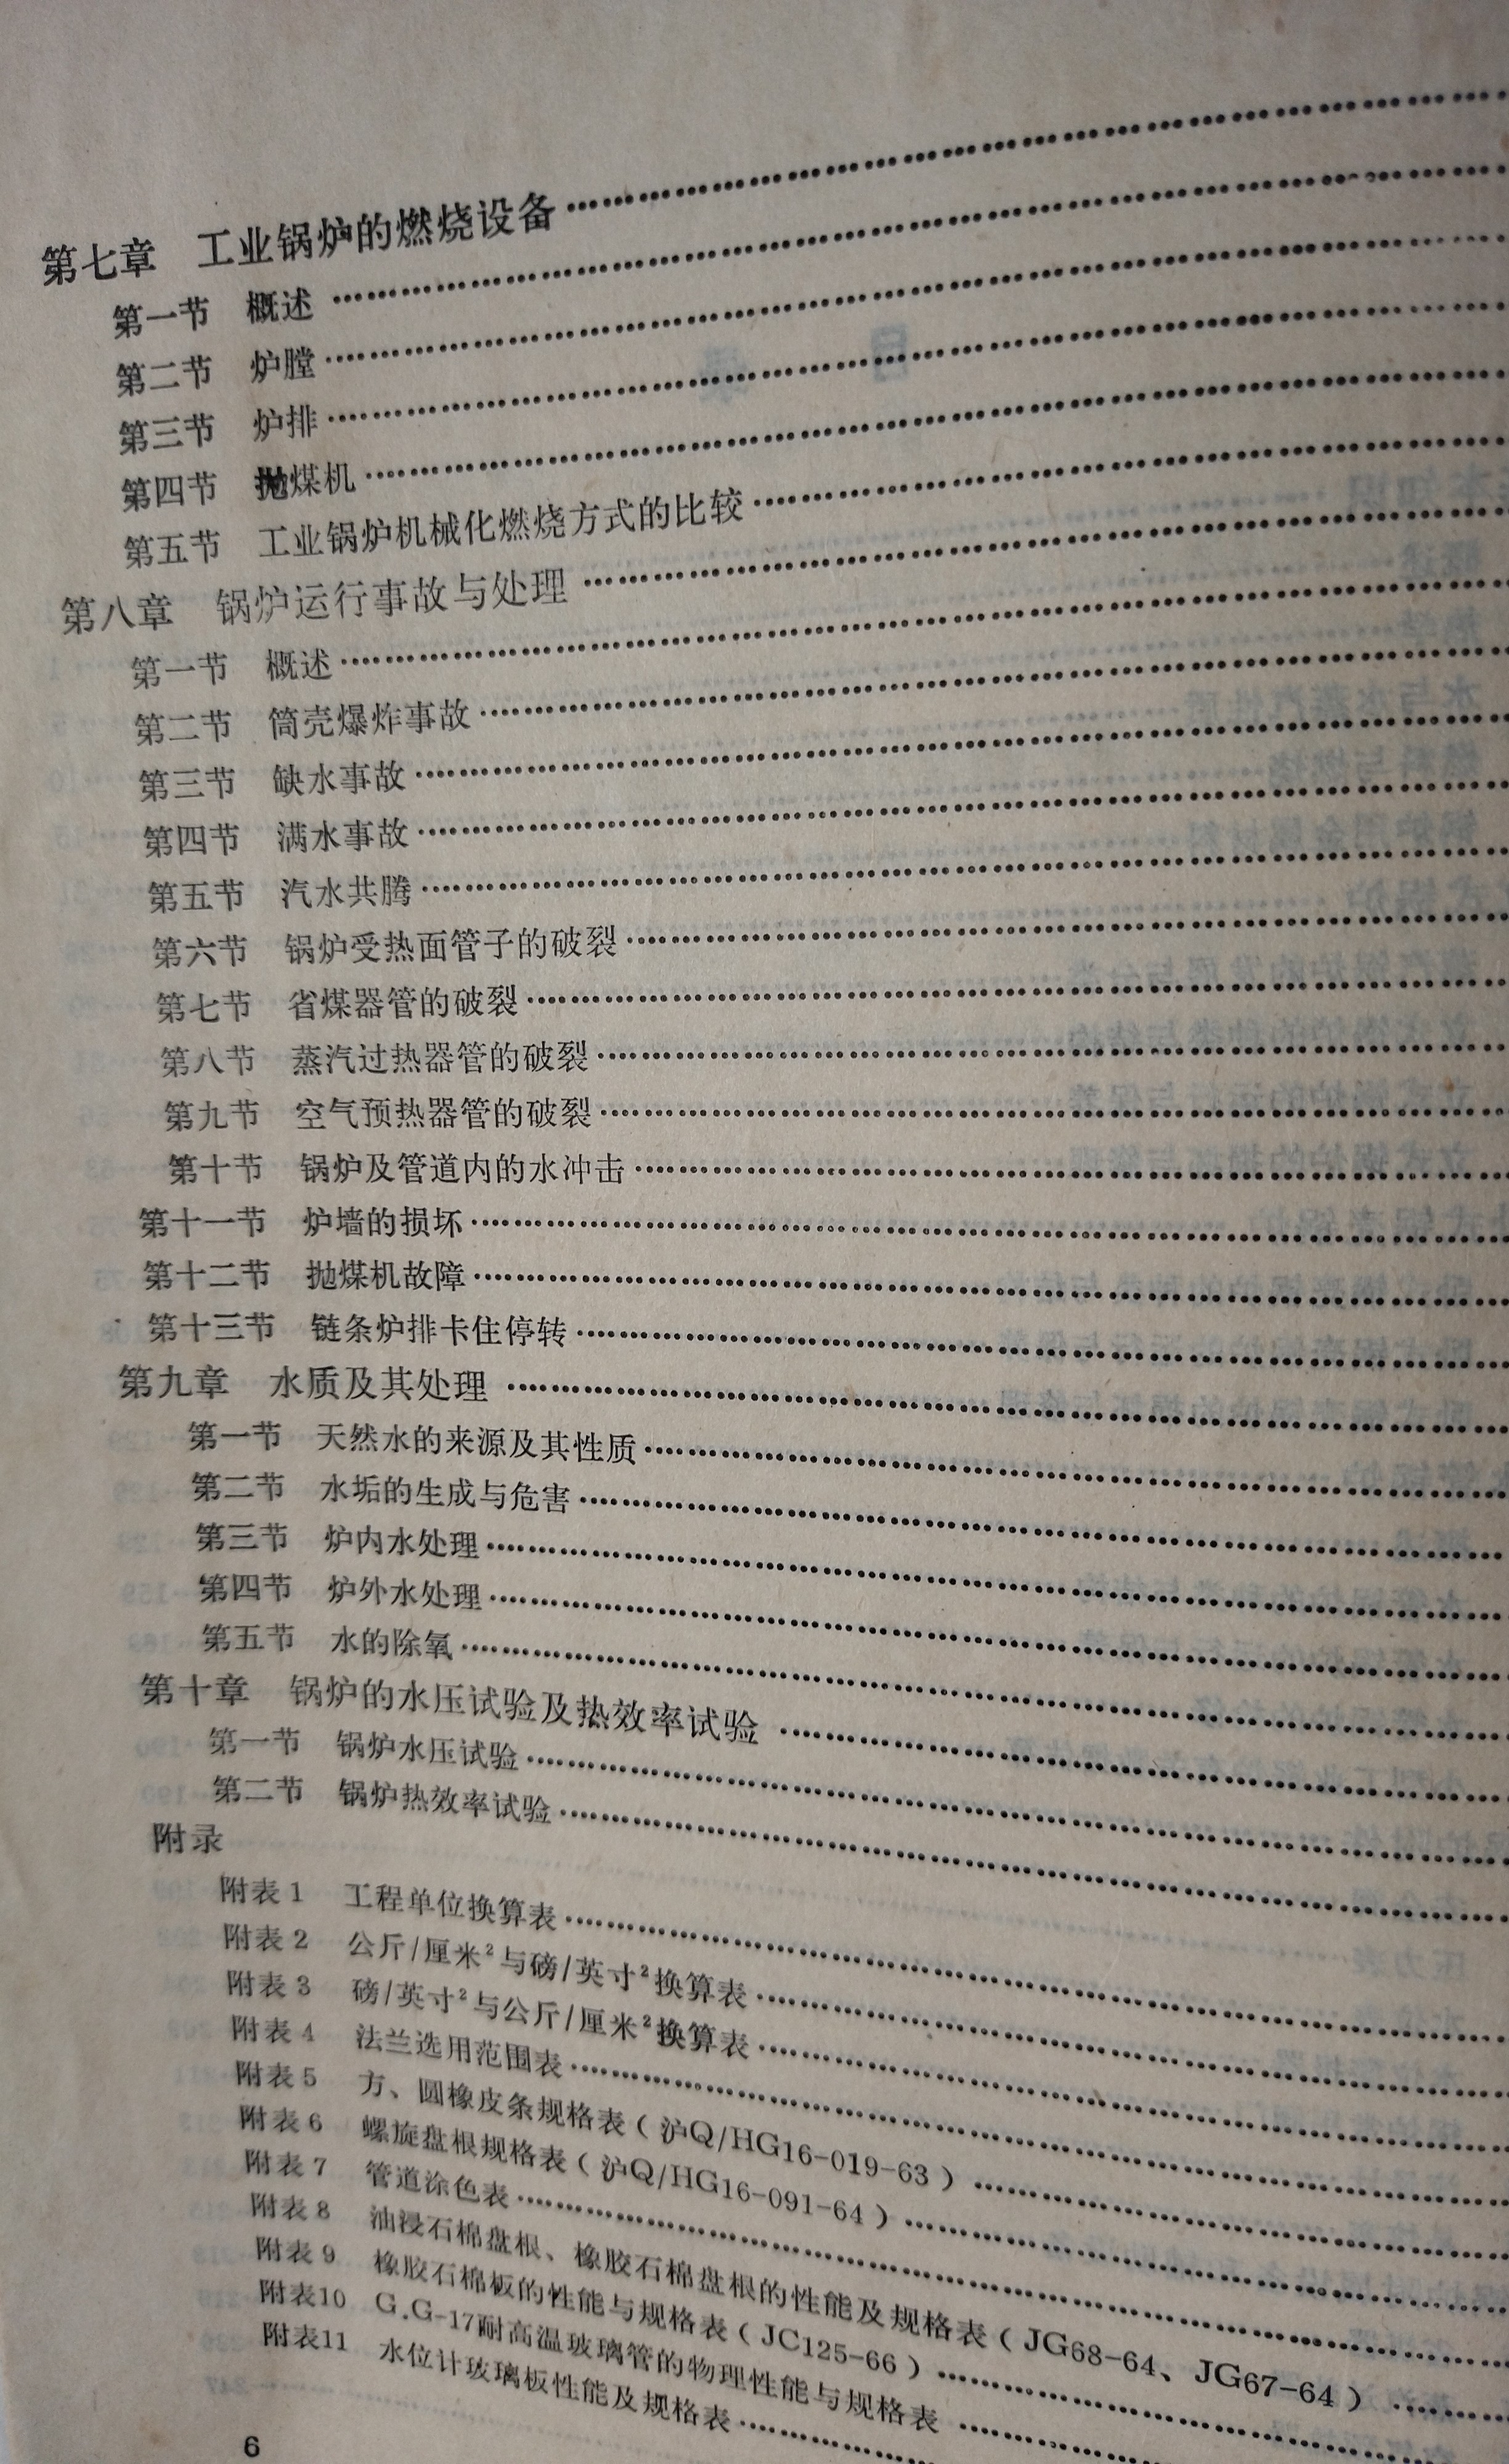 第七章 工业锅炉的燃烧设备
第一节 概述
第二节 炉膛
第三节 炉排
第四节 抛煤机
第五节 工业锅炉机械化燃烧方式的比较
第八章 锅炉运行事故与处理
第一节 概述
第二节 筒壳爆炸事故
第三节 缺水事故
第四节 满水事故
第五节 汽水共腾
第六节 锅炉受热面管子的破裂
第七节 省煤器管的破裂
第八节 蒸汽过热器管的破裂
第九节 空气预热器管的破裂
第十节 锅炉及管道内的水冲击
第十一节 炉墙的损坏
第十二节 抛煤机故障
第十三节 链条炉排卡住停转
第九章 水质及其处理
第一节 天然水的来源及其性质
第二节 水垢的生成与危害
第三节 炉内水处理
第四节 炉外水处理
第五节 水的除氧
第十章 锅炉的水压试验及热效率试验
第一节 锅炉水压试验
第二节 锅炉热效率试验
附录
附表1 工程单位换算表
附表2 公斤/厘米²与磅/英寸²换算表
附表3 磅/英寸²与公斤/厘米²换算表
附表4 法兰选用范围表
附表5 方、圆橡皮条规格表(沪Q/HG16-019-63)
附表6 螺旋盘根规格表(沪Q/HG16-091-64)
附表7 管道涂色表
附表8 油浸石棉盘根、橡胶石棉盘根的性能及规格表(JG68-64、JG67-64)
附表9 橡胶石棉板的性能与规格表(JC125-66)
附表10 G.G-17耐高温玻璃管的物理性能与规格表
附表11 水位计玻璃板性能及规格表
6